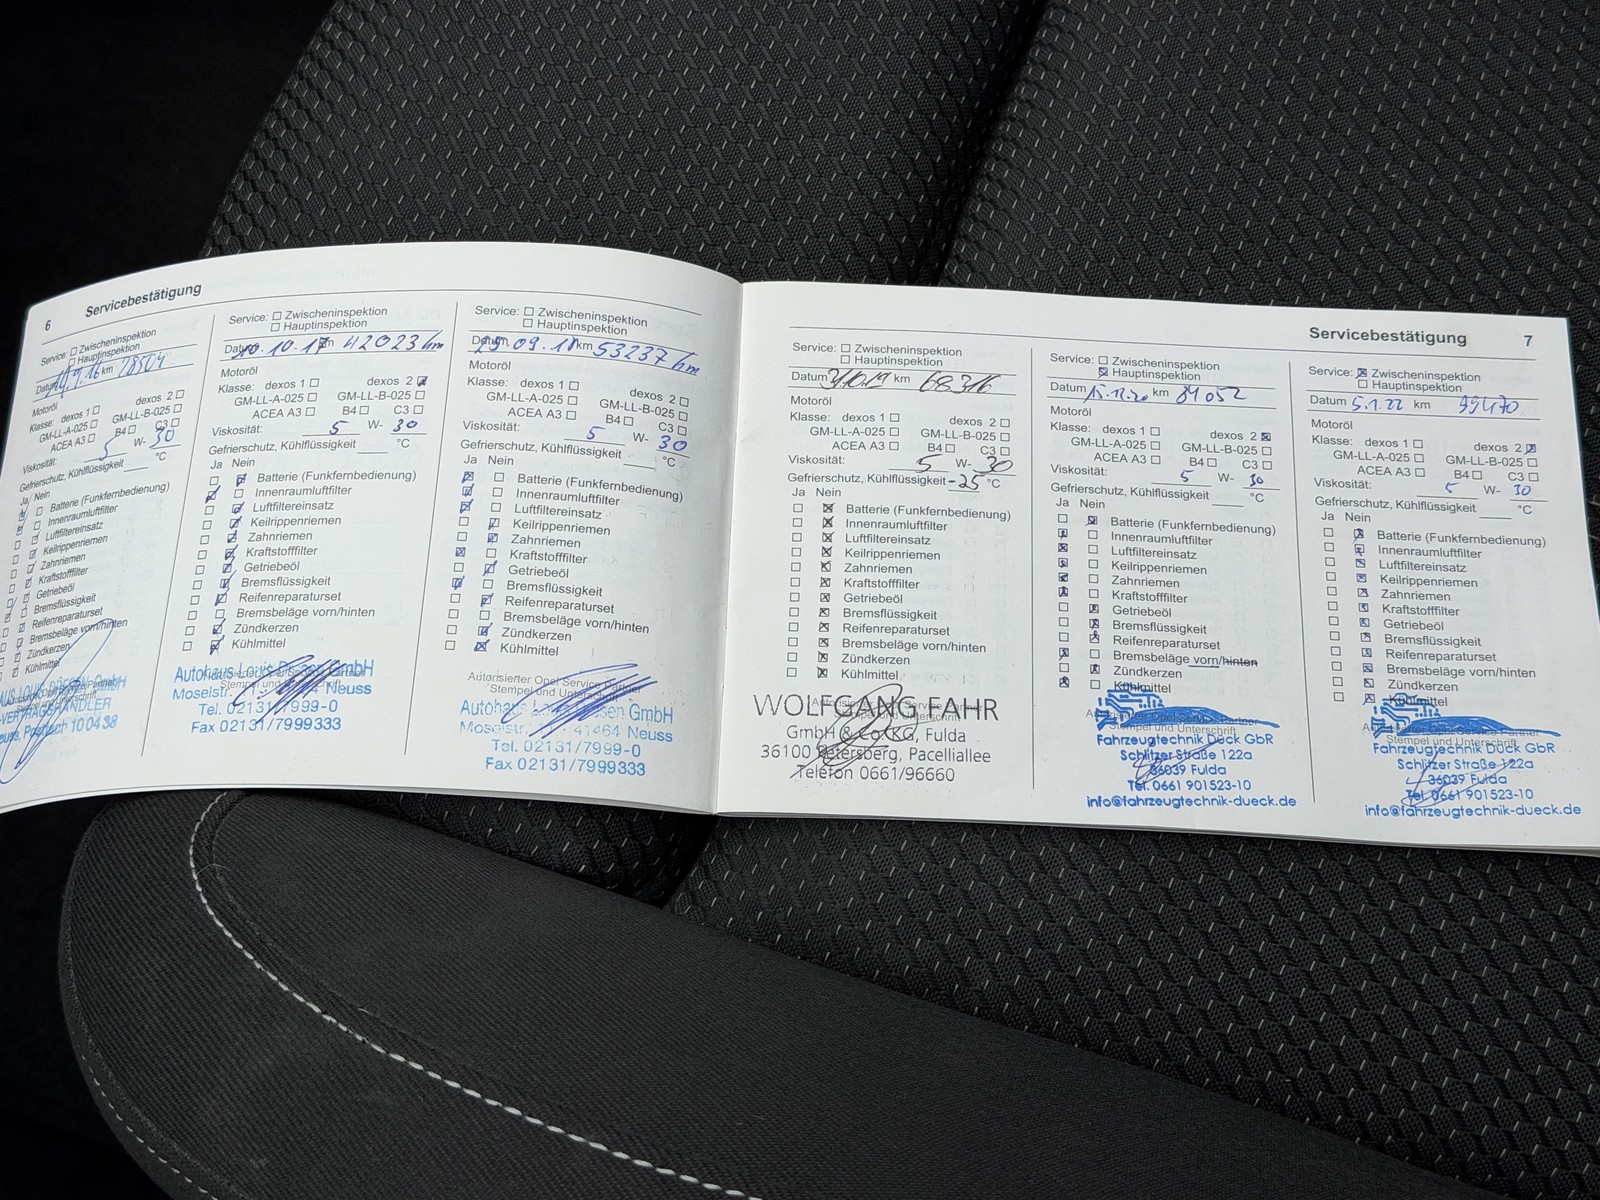 6 Servicebestätigung
Service: Zwischeninspektion
Hauptinspektion
Datum km 28504
Motoröl
Klasse: dexos 1 dexos 2
GM-LL-A-025 GM-LL-B-025
ACEA A3 B4 C3
Viskosität: 5 W- 30
Gefrierschutz, Kühlflüssigkeit °C
Ja Nein
Batterie (Funkfernbedienung)
Innenraumluftfilter
Luftfiltereinsatz
Keilrippenriemen
Zahnriemen
Kraftstofffilter
Getriebeöl
Bremsflüssigkeit
Reifenreparaturset
Bremsbeläge vorn/hinten
Zündkerzen
Kühlmittel
Service: Zwischeninspektion
Hauptinspektion
Datum 10.10.17 km 42023 km
Motoröl
Klasse: dexos 1 dexos 2
GM-LL-A-025 GM-LL-B-025
ACEA A3 B4 C3
Viskosität: 5 W- 30
Gefrierschutz, Kühlflüssigkeit °C
Ja Nein
Batterie (Funkfernbedienung)
Innenraumluftfilter
Luftfiltereinsatz
Keilrippenriemen
Zahnriemen
Kraftstofffilter
Getriebeöl
Bremsflüssigkeit
Reifenreparaturset
Bremsbeläge vorn/hinten
Zündkerzen
Kühlmittel
Autohaus Louis Dresen GmbH
Moselstr. Neuss
Tel. 02131/7999-0
Fax 02131/7999333
Service: Zwischeninspektion
Hauptinspektion
Datum 25.09.18 km 53237 km
Motoröl
Klasse: dexos 1 dexos 2
GM-LL-A-025 GM-LL-B-025
ACEA A3 B4 C3
Viskosität: 5 W- 30
Gefrierschutz, Kühlflüssigkeit °C
Ja Nein
Batterie (Funkfernbedienung)
Innenraumluftfilter
Luftfiltereinsatz
Keilrippenriemen
Zahnriemen
Kraftstofffilter
Getriebeöl
Bremsflüssigkeit
Reifenreparaturset
Bremsbeläge vorn/hinten
Zündkerzen
Kühlmittel
Autorisierter Opel Service Partner
Stempel und Unterschrift
Autohaus Louis Dresen GmbH
Moselstr. 41464 Neuss
Tel. 02131/7999-0
Fax 02131/7999333
Servicebestätigung 7
Service: Zwischeninspektion
Hauptinspektion
Datum km 68316
Motoröl
Klasse: dexos 1 dexos 2
GM-LL-A-025 GM-LL-B-025
ACEA A3 B4 C3
Viskosität: 5 W- 30
Gefrierschutz, Kühlflüssigkeit -25 °C
Ja Nein
Batterie (Funkfernbedienung)
Innenraumluftfilter
Luftfiltereinsatz
Keilrippenriemen
Zahnriemen
Kraftstofffilter
Getriebeöl
Bremsflüssigkeit
Reifenreparaturset
Bremsbeläge vorn/hinten
Zündkerzen
Kühlmittel
WOLFGANG FAHR
GmbH & Co KG, Fulda
36100 Petersberg, Pacelliallee
Telefon 0661/96660
Service: Zwischeninspektion
Hauptinspektion
Datum 15.12.20 km 84052
Motoröl
Klasse: dexos 1 dexos 2
GM-LL-A-025 GM-LL-B-025
ACEA A3 B4 C3
Viskosität: 5 W- 30
Gefrierschutz, Kühlflüssigkeit °C
Ja Nein
Batterie (Funkfernbedienung)
Innenraumluftfilter
Luftfiltereinsatz
Keilrippenriemen
Zahnriemen
Kraftstofffilter
Getriebeöl
Bremsflüssigkeit
Reifenreparaturset
Bremsbeläge vorn/hinten
Zündkerzen
Kühlmittel
Stempel und Unterschrift
Fahrzeugtechnik Dück GbR
Schlitzer Straße 122a
36039 Fulda
Tel. 0661 901523-10
info@fahrzeugtechnik-dueck.de
Service: Zwischeninspektion
Hauptinspektion
Datum 5.1.22 km 99470
Motoröl
Klasse: dexos 1 dexos 2
GM-LL-A-025 GM-LL-B-025
ACEA A3 B4 C3
Viskosität: 5 W- 30
Gefrierschutz, Kühlflüssigkeit °C
Ja Nein
Batterie (Funkfernbedienung)
Innenraumluftfilter
Luftfiltereinsatz
Keilrippenriemen
Zahnriemen
Kraftstofffilter
Getriebeöl
Bremsflüssigkeit
Reifenreparaturset
Bremsbeläge vorn/hinten
Zündkerzen
Kühlmittel
Stempel und Unterschrift
Fahrzeugtechnik Dück GbR
Schlitzer Straße 122a
36039 Fulda
Tel. 0661 901523-10
info@fahrzeugtechnik-dueck.de